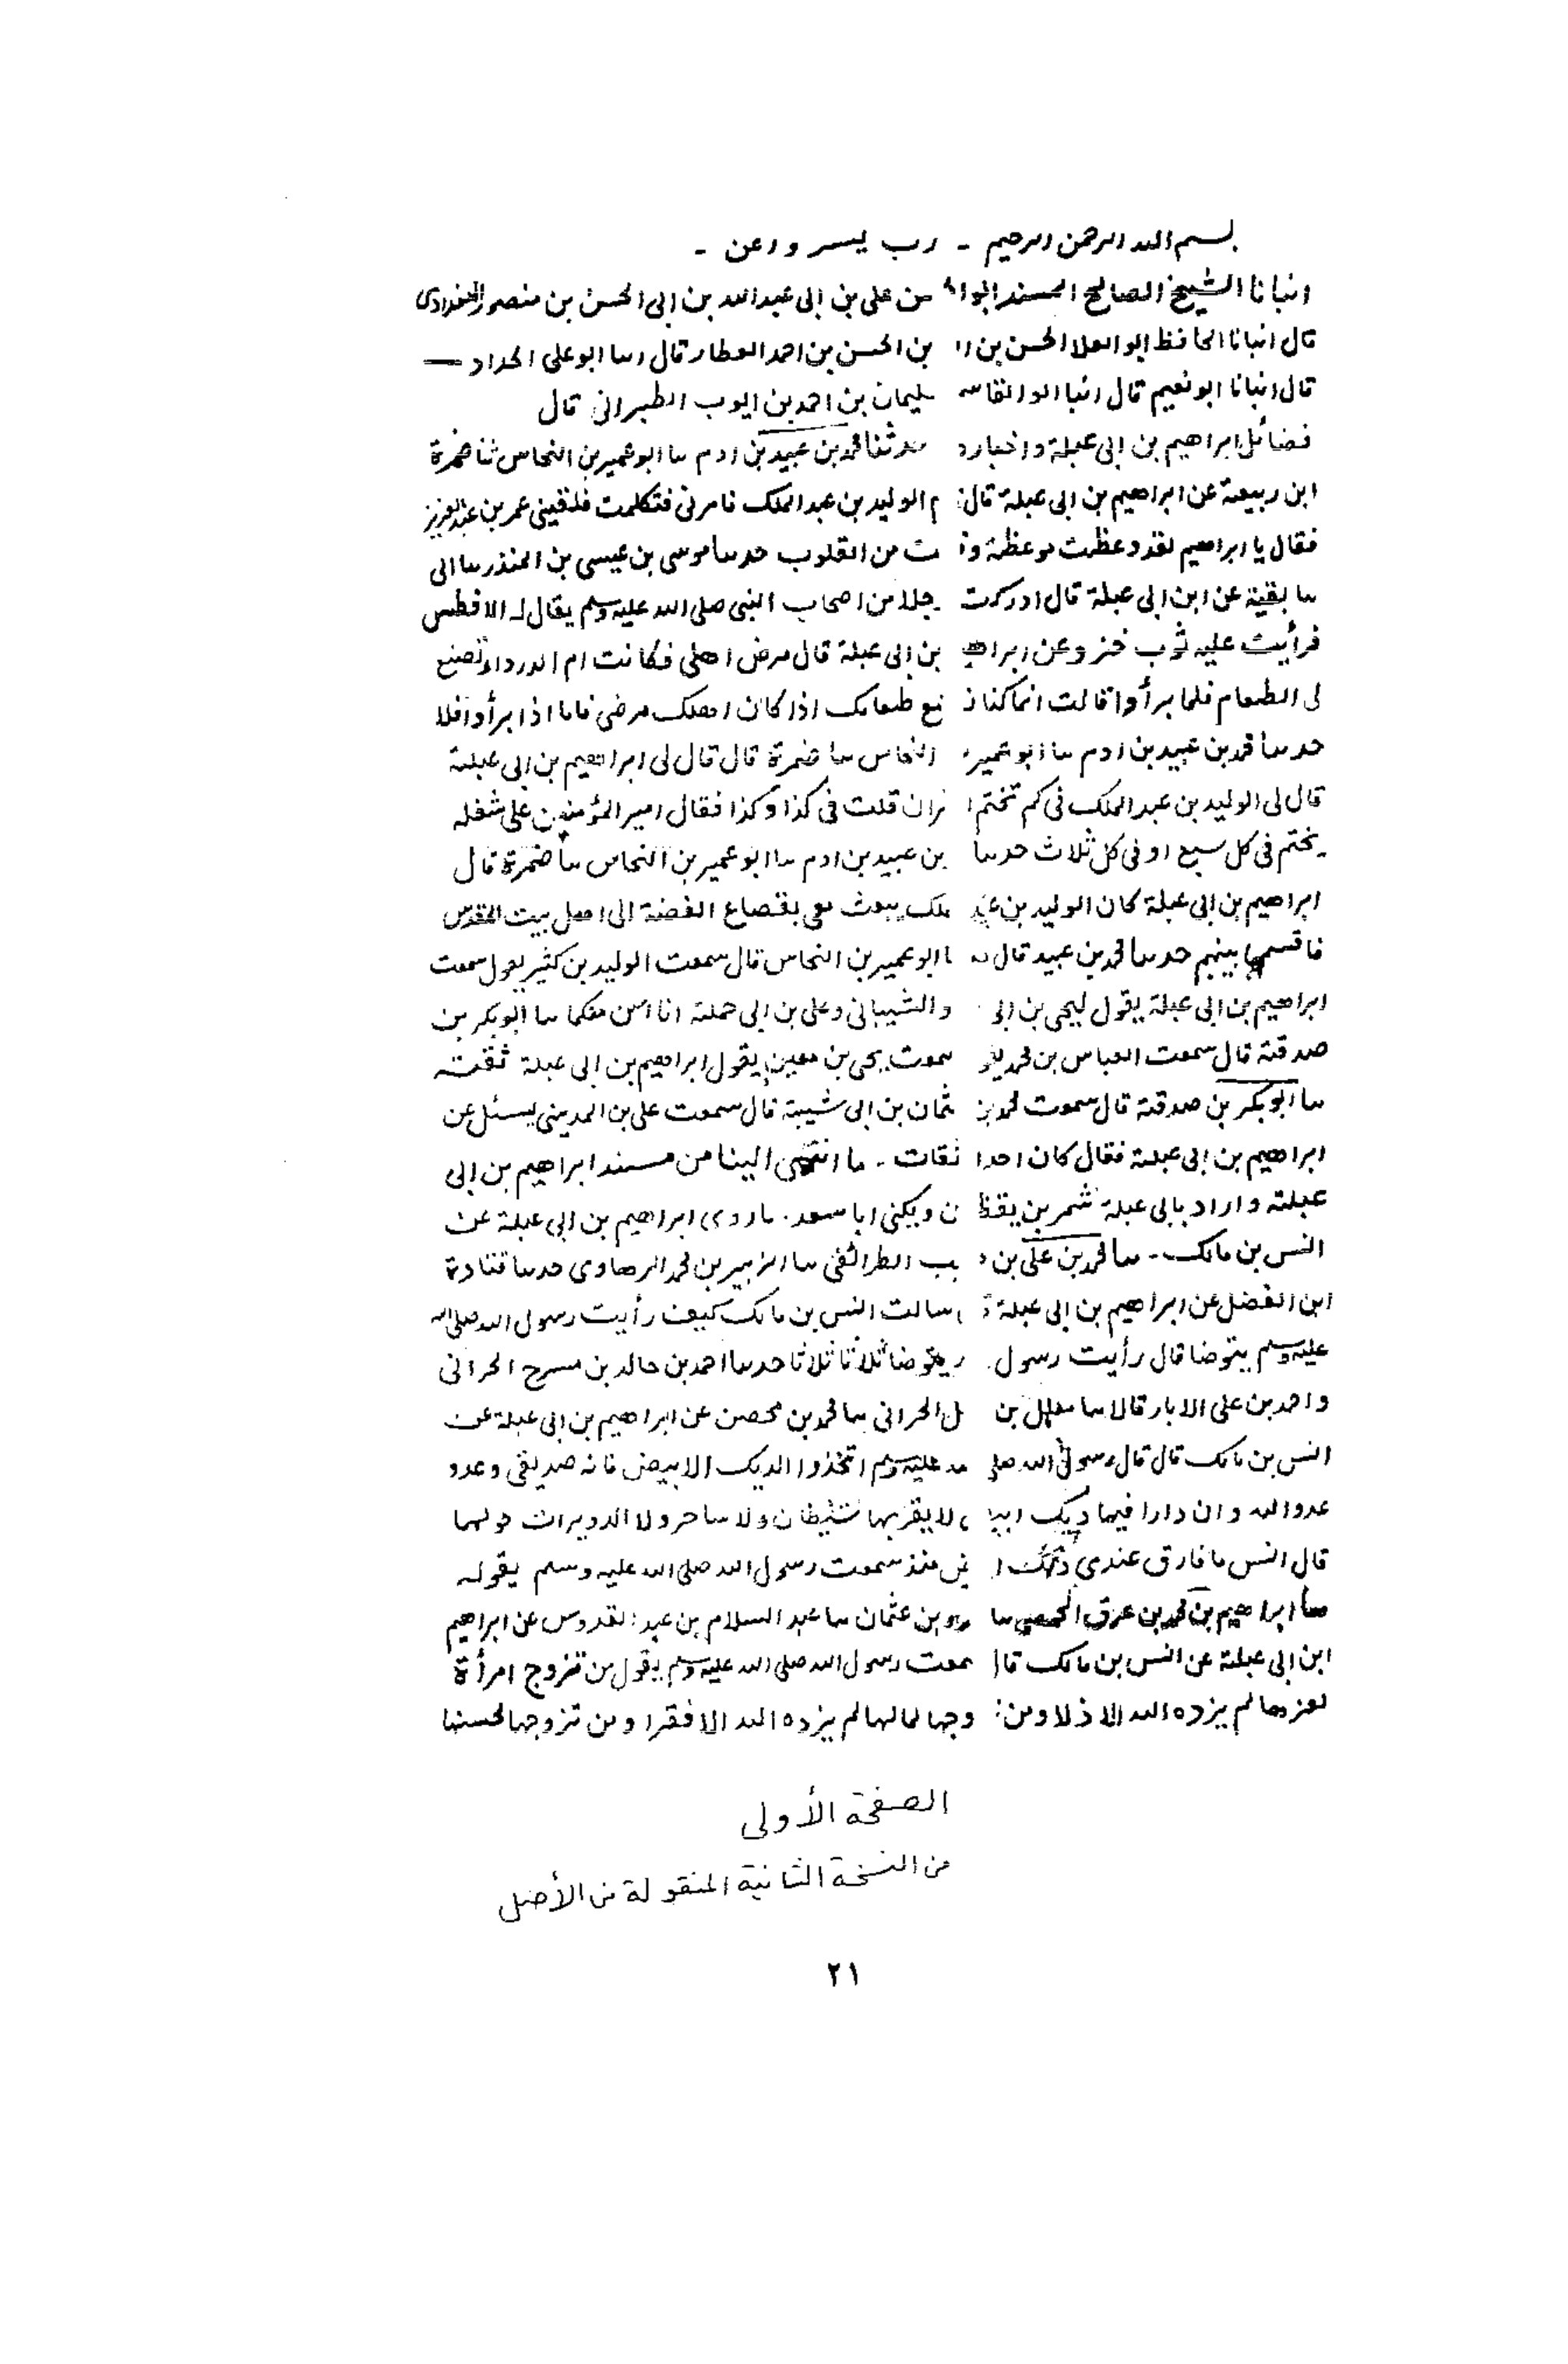 بسم الله الرحمن الرحيم - رب يسر واعن -
انبانا الشيخ الصالح المسند ابو ا من على بن ابى عبد الله بن ابى الحسن بن منصور البغدادى
قال انبانا الحافظ ابو العلا الحسن بن ا بن الحسن بن احمد العطار قال اسا ابو على الحداد —
قال انبانا ابو نعيم قال انبا ابو القاس سليمان بن احمد بن ايوب الطبرانى قال
فضائل ابراهيم بن ابى عبلة واخباره حدثنا محمد بن عبيد بن ادم سا ابو عمير بن النحاس ثنا ضمرة
ابن ربيعة عن ابراهيم بن ابى عبلة قال م الوليد بن عبد الملك فامرنى فتكلمت فلقينى عمر بن عبد العزيز
فقال يا ابراهيم لقد وعظت موعظة وق ت من القلوب حدسا موسى بن عيسى بن المنذر سا ابى
سا بقية عن ابن ابى عبلة قال ادركت رجلا من اصحاب النبى صلى الله عليه وسلم يقال له الافطس
فرأيت عليه ثوب خز وعن ابراهي بن ابى عبلة قال مرض اهلى فكانت ام الدرداء تصنع
لى الطعام فلما برأوا قالت انما كنا ن نع طعامك اذا كان اهلك مرضى فاما اذا برأوا فلا
حدسا محمد بن عبيد بن ادم سا ابو عمير النحاس سا ضمرة قال قال لى ابراهيم بن ابى عبلة
قال لى الوليد بن عبد الملك فى كم تختم ا نران قلت فى كذا وكذا فقال امير المؤمنين على شغله
يختم فى كل سبع او فى كل ثلاث حدسا بن عبيد بن ادم سا ابو عمير بن النحاس سا ضمرة قال
ابراهيم بن ابى عبلة كان الوليد بن عبد ملك يبعث معى بقصاع الفضة الى اهل بيت المقدس
فاقسمها بينهم حدسا محمد بن عبيد قال سا ابو عمير بن النحاس قال سمعت الوليد بن كثير يقول سمعت
ابراهيم بن ابى عبلة يقول ليحى بن ابى والشيبانى وعلى بن ابى حملة انا اسن منكما سا ابو بكر بن
صدقة قال سمعت العباس بن محمد يقو سمعت يحى بن معين يقول ابراهيم بن ابى عبلة ثقة
سا ابو بكر بن صدقة قال سمعت محمد بن ثمان بن ابى شيبة قال سمعت على بن المدينى يسئل عن
ابراهيم بن ابى عبلة فقال كان احد ا نقات - ما انتهى الينا من مسند ابراهيم بن ابى
عبلة واراد بابى عبلة شمر بن يقظ ن ويكنى ابا سعد. ما روى ابراهيم بن ابى عبلة عن
انس بن مالك - سا محمد بن على بن يب الطرائفى سا الزبير بن محمد الرهاوى حدسا قتادة
ابن الفضل عن ابراهيم بن ابى عبلة ق سالت انس بن مالك كيف رأيت رسول الله صلى الله
عليه وسلم يتوضا قال رأيت رسول يتوضا ثلاثا ثلاثا حدسا احمد بن خالد بن مسرح الحرانى
واحمد بن على الابار قالا سا معلل بن ل الحرانى سا محمد بن محصن عن ابراهيم بن ابى عبلة عن
انس بن مالك قال قال رسول الله صلى عليه وسلم اتخذوا الديك الابيض فانه صديقى وعدو
عدو الله وان دارا فيها ديك ابيض لا يقربها شيطان ولا ساحر ولا الدويرات حولها
قال انس ما فارق عندى ديك ا يض منذ سمعت رسول الله صلى الله عليه وسلم يقوله
سا ابراهيم بن محمد بن عرق الحمصى سا عمرو بن عثمان سا عبد السلام بن عبد القدوس عن ابراهيم
ابن ابى عبلة عن انس بن مالك قال سمعت رسول الله صلى الله عليه وسلم يقول من تزوج امرأة
لعزها لم يزده الله الا ذلا ومن وجها لمالها لم يزده الله الا فقرا ومن تزوجها لحسنها
الصفحة الأولى
من النسخة الثانية المنقولة من الأصل
٢١